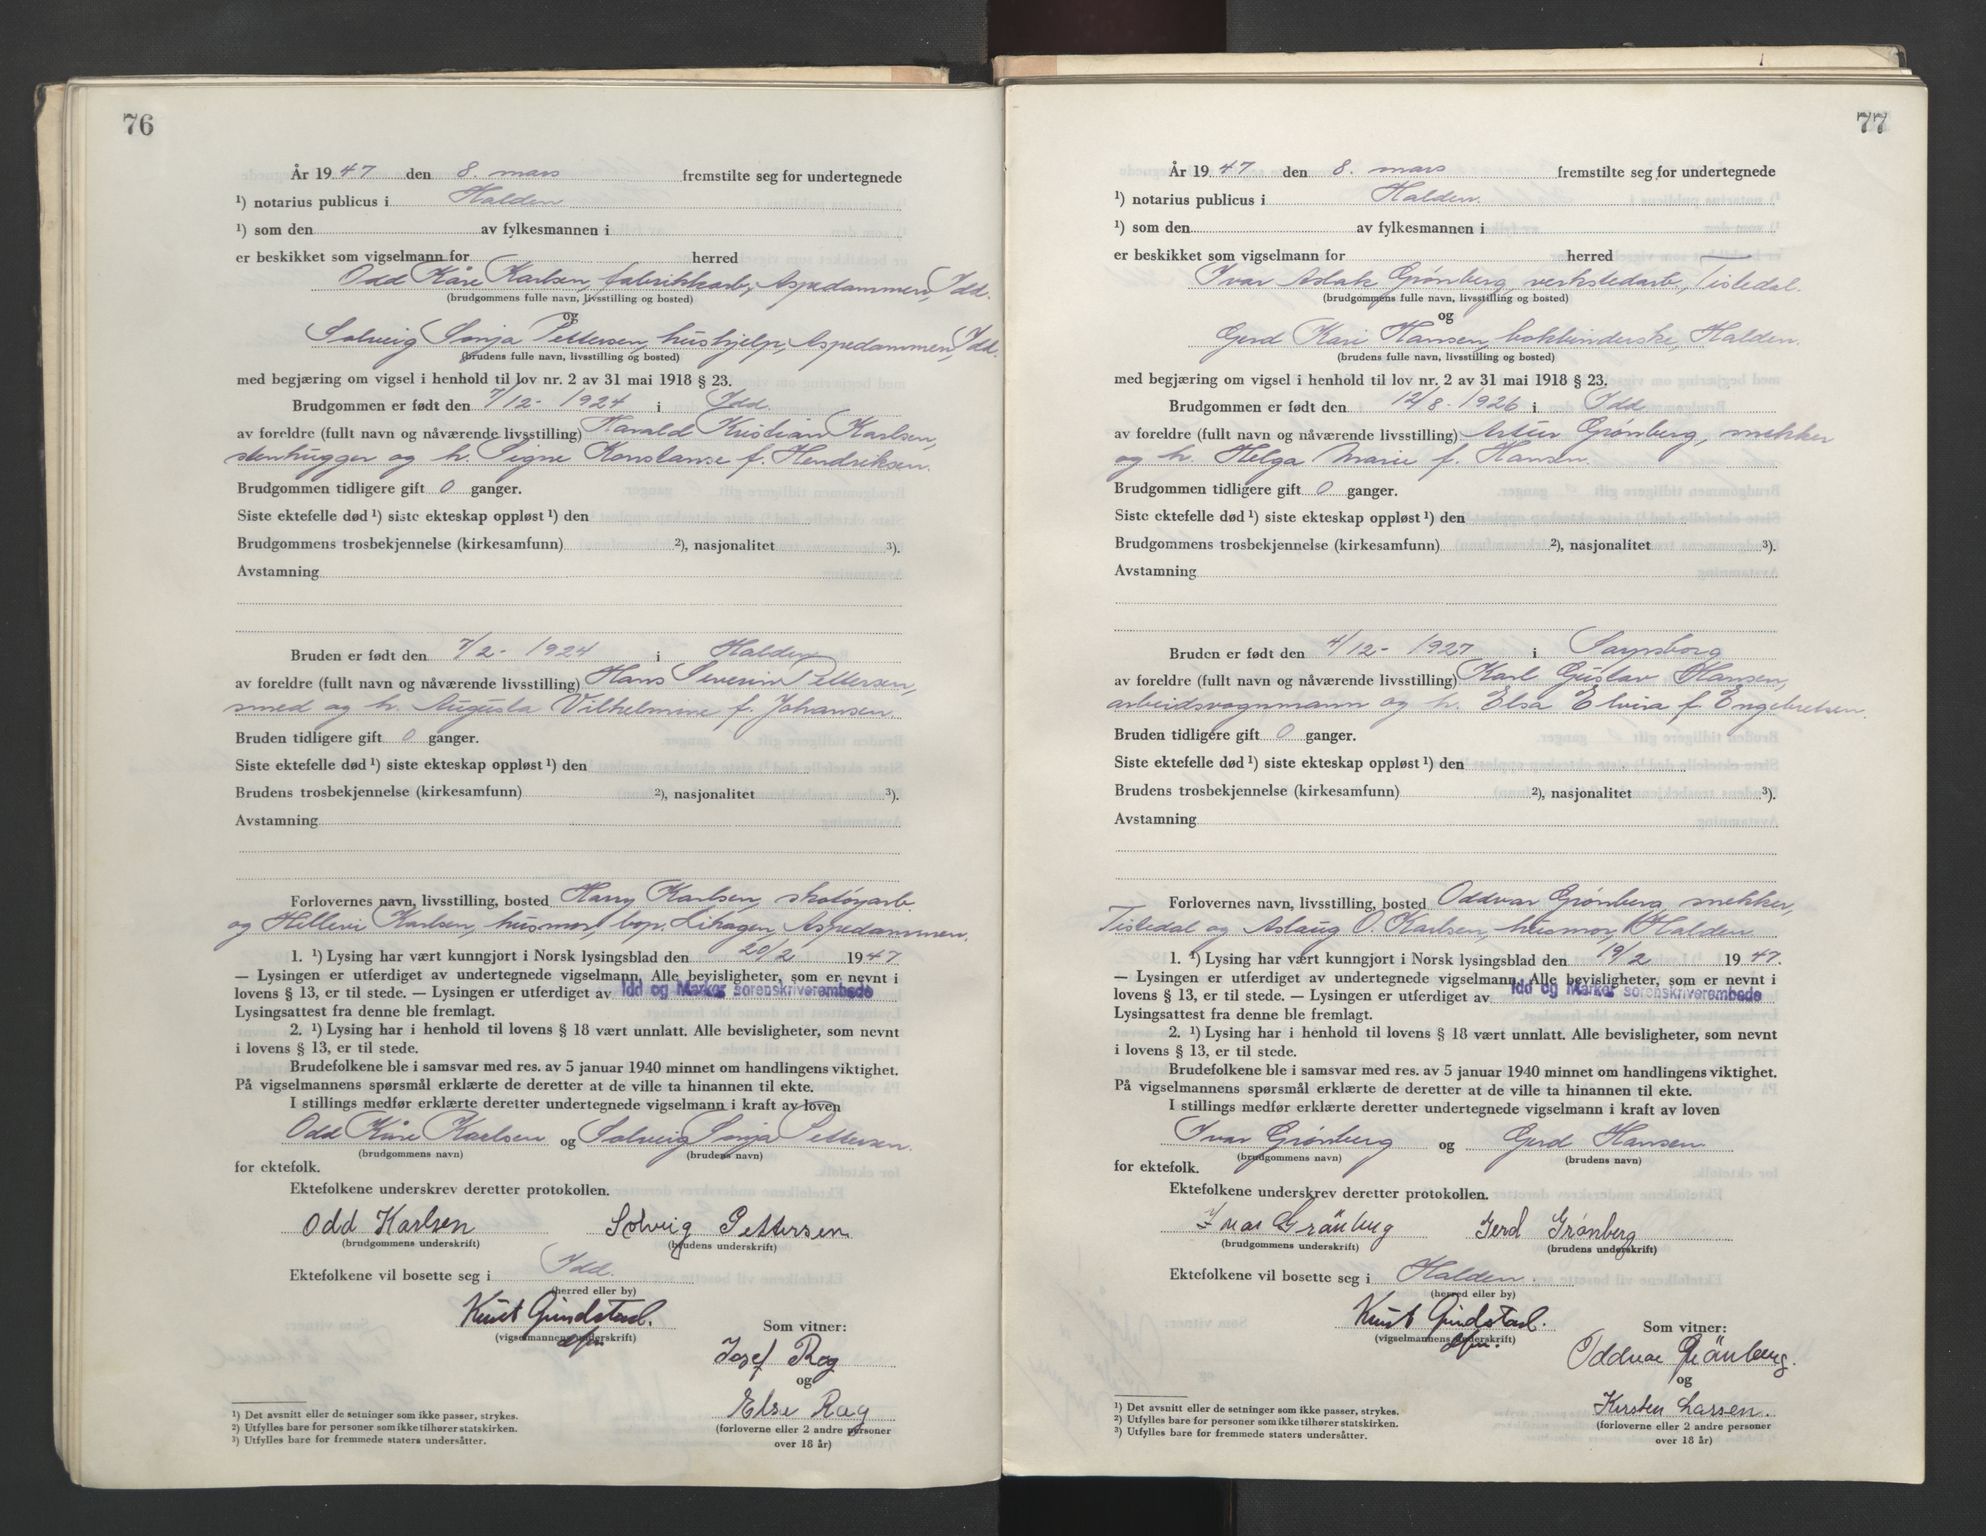 76
År 1947 den 8. mars fremstilte seg for undertegnede
¹) notarius publicus i Halden
¹) som den av fylkesmannen i
er beskikket som vigselmann for herred
Odd Kåre Karlsen, fabrikkarb., Aspedammen, Idd.
(brudgommens fulle navn, livsstilling og bosted)
og
Solveig Sonja Pettersen, hushjelp, Aspedammen, Idd.
(brudens fulle navn, livsstilling og bosted)
med begjæring om vigsel i henhold til lov nr. 2 av 31 mai 1918 § 23.
Brudgommen er født den 7/12- 1924 i Idd.
av foreldre (fullt navn og nåværende livsstilling) Harald Kristian Karlsen,
stenhugger og h. Signe Konstanse f. Hendriksen.
Brudgommen tidligere gift 0 ganger.
Siste ektefelle død ¹) siste ekteskap oppløst ¹) den
Brudgommens trosbekjennelse (kirkesamfunn) ²), nasjonalitet ³).
Avstamning
Bruden er født den 7/2- 1924 i Halden
av foreldre (fullt navn og nåværende livsstilling) Hans Severin Pettersen,
smed og h. Augusta Vilhelmine f. Johansen.
Bruden tidligere gift 0 ganger.
Siste ektefelle død ¹) siste ekteskap oppløst ¹) den
Brudens trosbekjennelse (kirkesamfunn) ²), nasjonalitet ³).
Avstamning
Forlovernes navn, livsstilling, bosted Harry Karlsen, skotøyarb.
og Hellevi Karlsen, husmor, bop. Lihagen, Aspedammen.
1. ¹) Lysing har vært kunngjort i Norsk lysingsblad den 20/2 1947.
— Lysingen er utferdiget av undertegnede vigselmann. Alle bevisligheter, som er nevnt i
lovens § 13, er til stede. — Lysingen er utferdiget av Idd og Marker sorenskriverembede
Lysingsattest fra denne ble fremlagt.
2. ¹) Lysing har i henhold til lovens § 18 vært unnlatt. Alle bevisligheter, som nevnt
i lovens § 13, er til stede.
Brudefolkene ble i samsvar med res. av 5 januar 1940 minnet om handlingens viktighet.
På vigselmannens spørsmål erklærte de deretter at de ville ta hinannen til ekte.
I stillings medfør erklærte deretter undertegnede vigselmann i kraft av loven
Odd Kåre Karlsen og Solveig Sonja Pettersen.
(brudgommens navn) (brudens navn)
for ektefolk.
Ektefolkene underskrev deretter protokollen.
Odd Karlsen Solveig Pettersen
(brudgommens underskrift) (brudens underskrift)
Ektefolkene vil bosette seg i Idd.
(herred eller by)
Knut Grindstad.
(vigselmannens underskrift)
Som vitner:
Josef Rog
og
Else Rog
(forloverne eller 2 andre personer
over 18 år)
¹) Det avsnitt eller de setninger som ikke passer, strykes.
²) Utfylles bare for personer som ikke tilhører statskirken.
³) Utfylles bare for fremmede staters undersåtter.
77
År 1947 den 8. mars fremstilte seg for undertegnede
¹) notarius publicus i Halden.
¹) som den av fylkesmannen i
er beskikket som vigselmann for herred
Ivar Aslak Grønberg, verkstedarb., Tistedal.
(brudgommens fulle navn, livsstilling og bosted)
og
Gerd Kari Hansen, bokbinderske, Halden.
(brudens fulle navn, livsstilling og bosted)
med begjæring om vigsel i henhold til lov nr. 2 av 31 mai 1918 § 23.
Brudgommen er født den 12/8- 1926 i Idd
av foreldre (fullt navn og nåværende livsstilling) Artur Grønberg, mekker
og h. Helga Marie f. Hansen.
Brudgommen tidligere gift 0 ganger.
Siste ektefelle død ¹) siste ekteskap oppløst ¹) den
Brudgommens trosbekjennelse (kirkesamfunn) ²), nasjonalitet ³).
Avstamning
Bruden er født den 4/12- 1927 i Sarpsborg
av foreldre (fullt navn og nåværende livsstilling) Karl Gustav Hansen,
arbeidsvognmann og h. Elsa Elvira f. Engebretsen.
Bruden tidligere gift 0 ganger.
Siste ektefelle død ¹) siste ekteskap oppløst ¹) den
Brudens trosbekjennelse (kirkesamfunn) ²), nasjonalitet ³).
Avstamning
Forlovernes navn, livsstilling, bosted Oddvar Grønberg, mekker,
Tistedal og Aslaug O. Karlsen, husmor, Halden
1. ¹) Lysing har vært kunngjort i Norsk lysingsblad den 19/2 1947.
— Lysingen er utferdiget av undertegnede vigselmann. Alle bevisligheter, som er nevnt i
lovens § 13, er til stede. — Lysingen er utferdiget av Idd og Marker sorenskriverembede
Lysingsattest fra denne ble fremlagt.
2. ¹) Lysing har i henhold til lovens § 18 vært unnlatt. Alle bevisligheter, som nevnt
i lovens § 13, er til stede.
Brudefolkene ble i samsvar med res. av 5 januar 1940 minnet om handlingens viktighet.
På vigselmannens spørsmål erklærte de deretter at de ville ta hinannen til ekte.
I stillings medfør erklærte deretter undertegnede vigselmann i kraft av loven
Ivar Grønberg og Gerd Hansen
(brudgommens navn) (brudens navn)
for ektefolk.
Ektefolkene underskrev deretter protokollen.
Ivar Grönberg Gerd Grønberg
(brudgommens underskrift) (brudens underskrift)
Ektefolkene vil bosette seg i Halden.
(herred eller by)
Knut Grindstad.
(vigselmannens underskrift)
Som vitner:
Oddvar Grönberg.
og
Kirsten Larsen.
(forloverne eller 2 andre personer
over 18 år)
¹) Det avsnitt eller de setninger som ikke passer, strykes.
²) Utfylles bare for personer som ikke tilhører statskirken.
³) Utfylles bare for fremmede staters undersåtter.